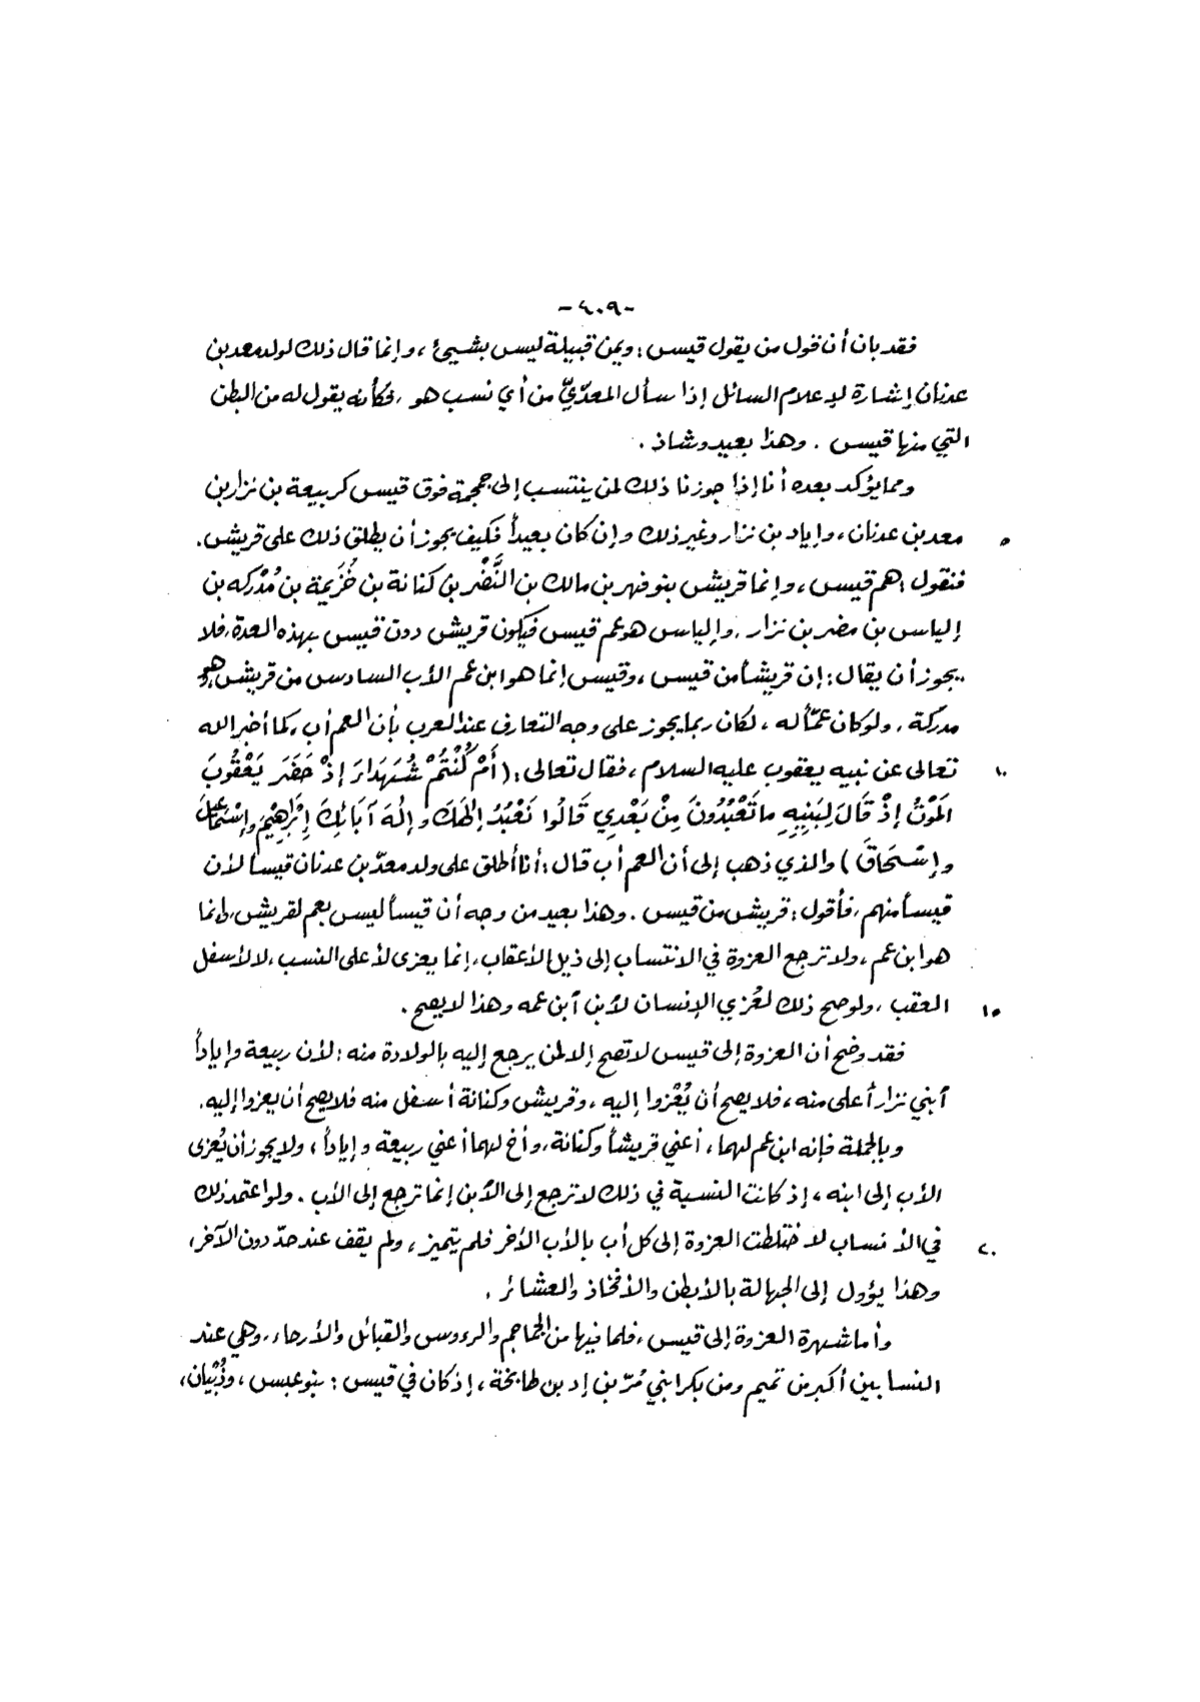 -٤٠٩-
فقد بان أن قول من يقول قيس: ويمن قبيلة ليس بشيئ، وإنما قال ذلك لولد معد بن
عدنان إشارة لإعلام السائل إذا سأل المعدّيّ من أي نسب هو، فكأنه يقول له من البطن
التي منها قيس. وهذا بعيد وشاذ.
ومما يؤكد بعده أنا إذا جوزنا ذلك لمن ينتسب إلى جمجمة فوق قيس كربيعة بن نزار بن
٥ معد بن عدنان، وإياد بن نزار وغير ذلك وإن كان بعيداً فكيف يجوز أن يطلق ذلك على قريش.
فنقول: هم قيس، وإنما قريش بنو فهر بن مالك بن النَّضْر بن كنانة بن خُزَيمة بن مُدْركه بن
إلياس بن مضر بن نزار، وإلياس هو عم قيس فيكون قريش دون قيس بهذه العدة، فلا
يجوز أن يقال: إن قريشاً من قيس، وقيس إنما هو ابن عم الأب السادس من قريش هو
مدركة، ولو كان عمّاً له، لكان ربما يجوز على وجه التعارف عند العرب بأن العم أب، كما أخبر الله
١٠ تعالى عن نبيه يعقوب عليه السلام، فقال تعالى: (أَمْ كُنْتُمْ شُهَدَاءَ إِذْ حَضَرَ يَعْقُوبَ
الَمْوْتُ إِذْ قَالَ لِبَنِيِهِ مَا تَعْبُدُونَ مِنْ بَعْدِي قَالُوا نَعْبُدُ إِلَهَكَ وإِلَهَ آبَائِكَ إِبْرَاهِيْمَ وإِسْمَاعِيلَ
وإِسْحَاقَ) والذي ذهب إلى أن العم أب قال: أنا أطلق على ولد معدّ بن عدنان قيساً لأن
قيساً منهم، فأقول: قريش من قيس. وهذا بعيد من وجه أن قيساً ليس بعم لقريش، وإنما
هو ابن عم، ولا ترجع العزوة في الانتساب إلى ذيل الأعقاب، إنما يعزى لأعلى النسب، لا لأسفل
١٥ العقب، ولو صح ذلك لعُزي الإنسان لأبن ابن عمه وهذا لا يصح.
فقد وضح أن العزوة إلى قيس لا تصح إلا لمن يرجع إليه بالولادة منه: لأن ربيعة وإياداً
آبني نزار أعلى منه، فلا يصح أن يُعْزوا إليه، وقريش وكنانة أسفل منه فلا يصح أن يعزوا إليه.
وبالجملة فإنه ابن عم لهما، أعني قريشاً وكنانة، وأخ لهما أعني ربيعة وإياداً، ولا يجوز أن يُعزى
الأب إلى ابنه، إذ كانت النسبة في ذلك لا ترجع إلى الأبن إنما ترجع إلى الأب. ولو اعتمد ذلك
٢٠ في الأنساب لاختلطت العزوة إلى كل أب بالأب الأخر فلم يتميز، ولم يقف عند حدّ دون الآخر،
وهذا يؤول إلى الجهالة بالأبطن والأفخاذ والعشائر.
وأما شهرة العزوة إلى قيس، فلما فيها من الجماجم والرءوس والقبائل والأرحاء، وهي عند
النسابين أكبر من تميم ومن بكر ابني مُرّ بن إد بن طابخة، إذ كان في قيس: بنو عبس، وذُبْيان،